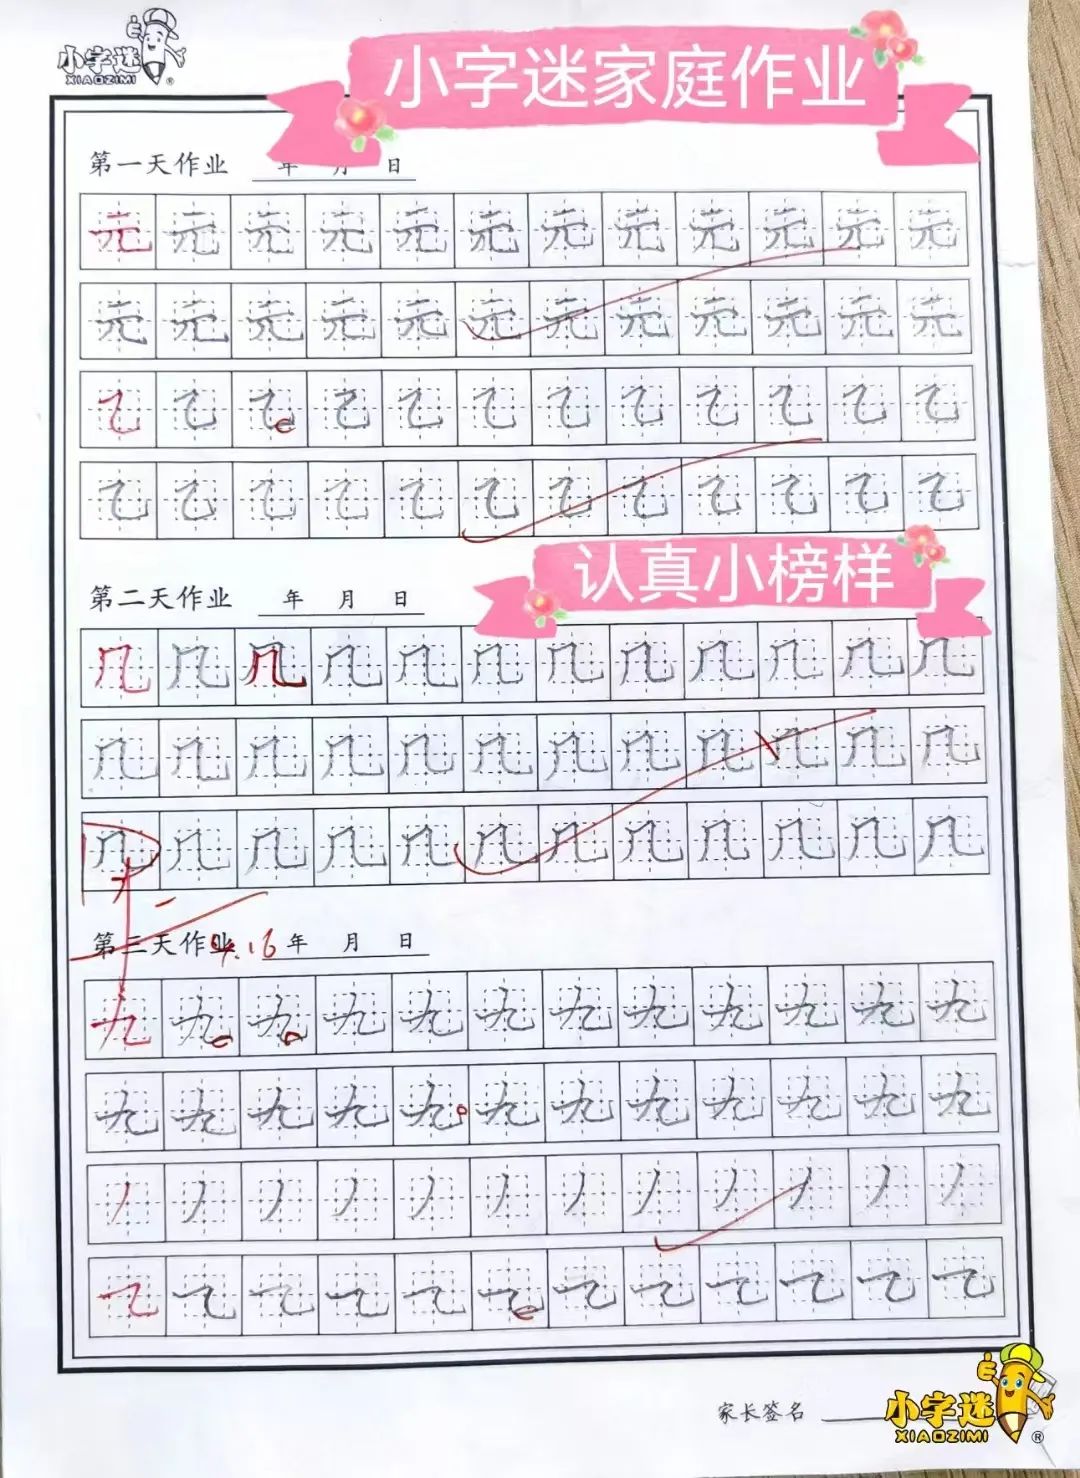 小字迷
XIAOZIMI®
小字迷家庭作业
第一天作业 年 月 日
元元元元元元元元元元元元
元元元元元元元元元元元元
乙乙乙乙乙乙乙乙乙乙乙乙
乙乙乙乙乙乙乙乙乙乙乙乙
认真小榜样
第二天作业 年 月 日
几几几几几几几几几几几几
几几几几几几几几几几几几
几几几几几几几几几几几几
第三天作业 9.16 年 月 日
九九九九九九九九九九九九
九九九九九九九九九九九九
丿丿丿丿丿丿丿丿丿丿丿丿
⺄⺄⺄⺄⺄⺄⺄⺄⺄⺄⺄⺄
家长签名
小字迷
XIAOZIMI®